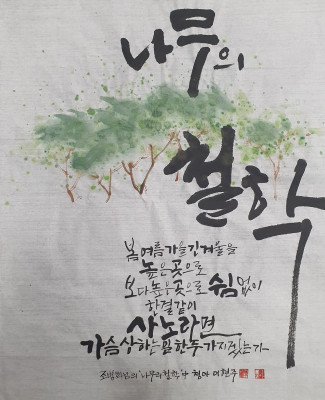 나무의
철학
봄여름가을긴겨울을
높은곳으로
보다높은곳으로 쉼없이
한결같이
사노라면
가슴상하는일한두가지겠는가
조병화님의 '나무의 철학'中 청아